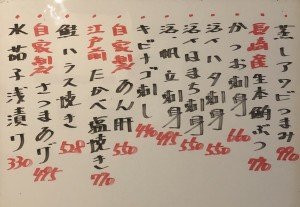 蒸しアワビつまみ 990
長崎産生本鮪ぶつ 770
かつお刺身 660
活〆イサキ刺身 550
活〆ハタ刺身 550
活〆あじ刺身 550
活帆立刺身 495
キビナゴ刺し 440
自家製あん肝 550
江戸前たかべ塩焼き 770
鮭ハラス焼き 528
自家製さつまあげ 495
水茄子浅漬け 330